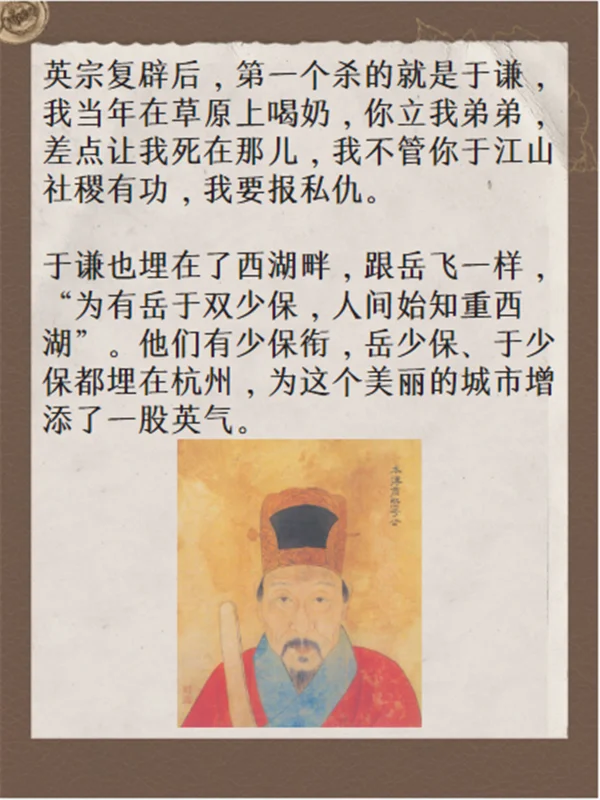 英宗复辟后，第一个杀的就是于谦，
我当年在草原上喝奶，你立我弟弟，
差点让我死在那儿，我不管你于江山
社稷有功，我要报私仇。
于谦也埋在了西湖畔，跟岳飞一样，
“为有岳于双少保，人间始知重西
湖”。他们有少保衔，岳少保、于少
保都埋在杭州，为这个美丽的城市增
添了一股英气。